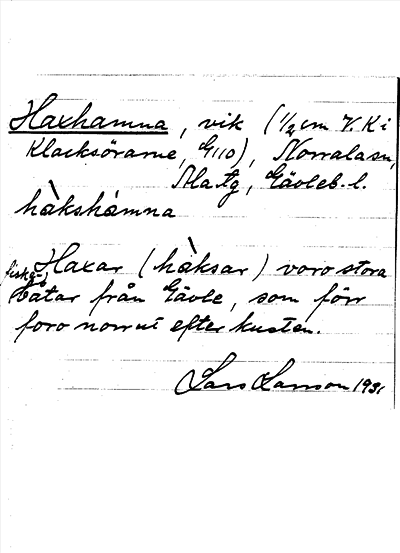 Haxhamna, vik (1/2 cm V. K i
Klacksörarne, G110), Norrala sn,
Ma tg, Gävleb. l.
hàkshámna
Haxar (hàksar) voro stora
fiske-
båtar från Gävle, som förr
foro norrut efter kusten.
Lars Larsson 1931